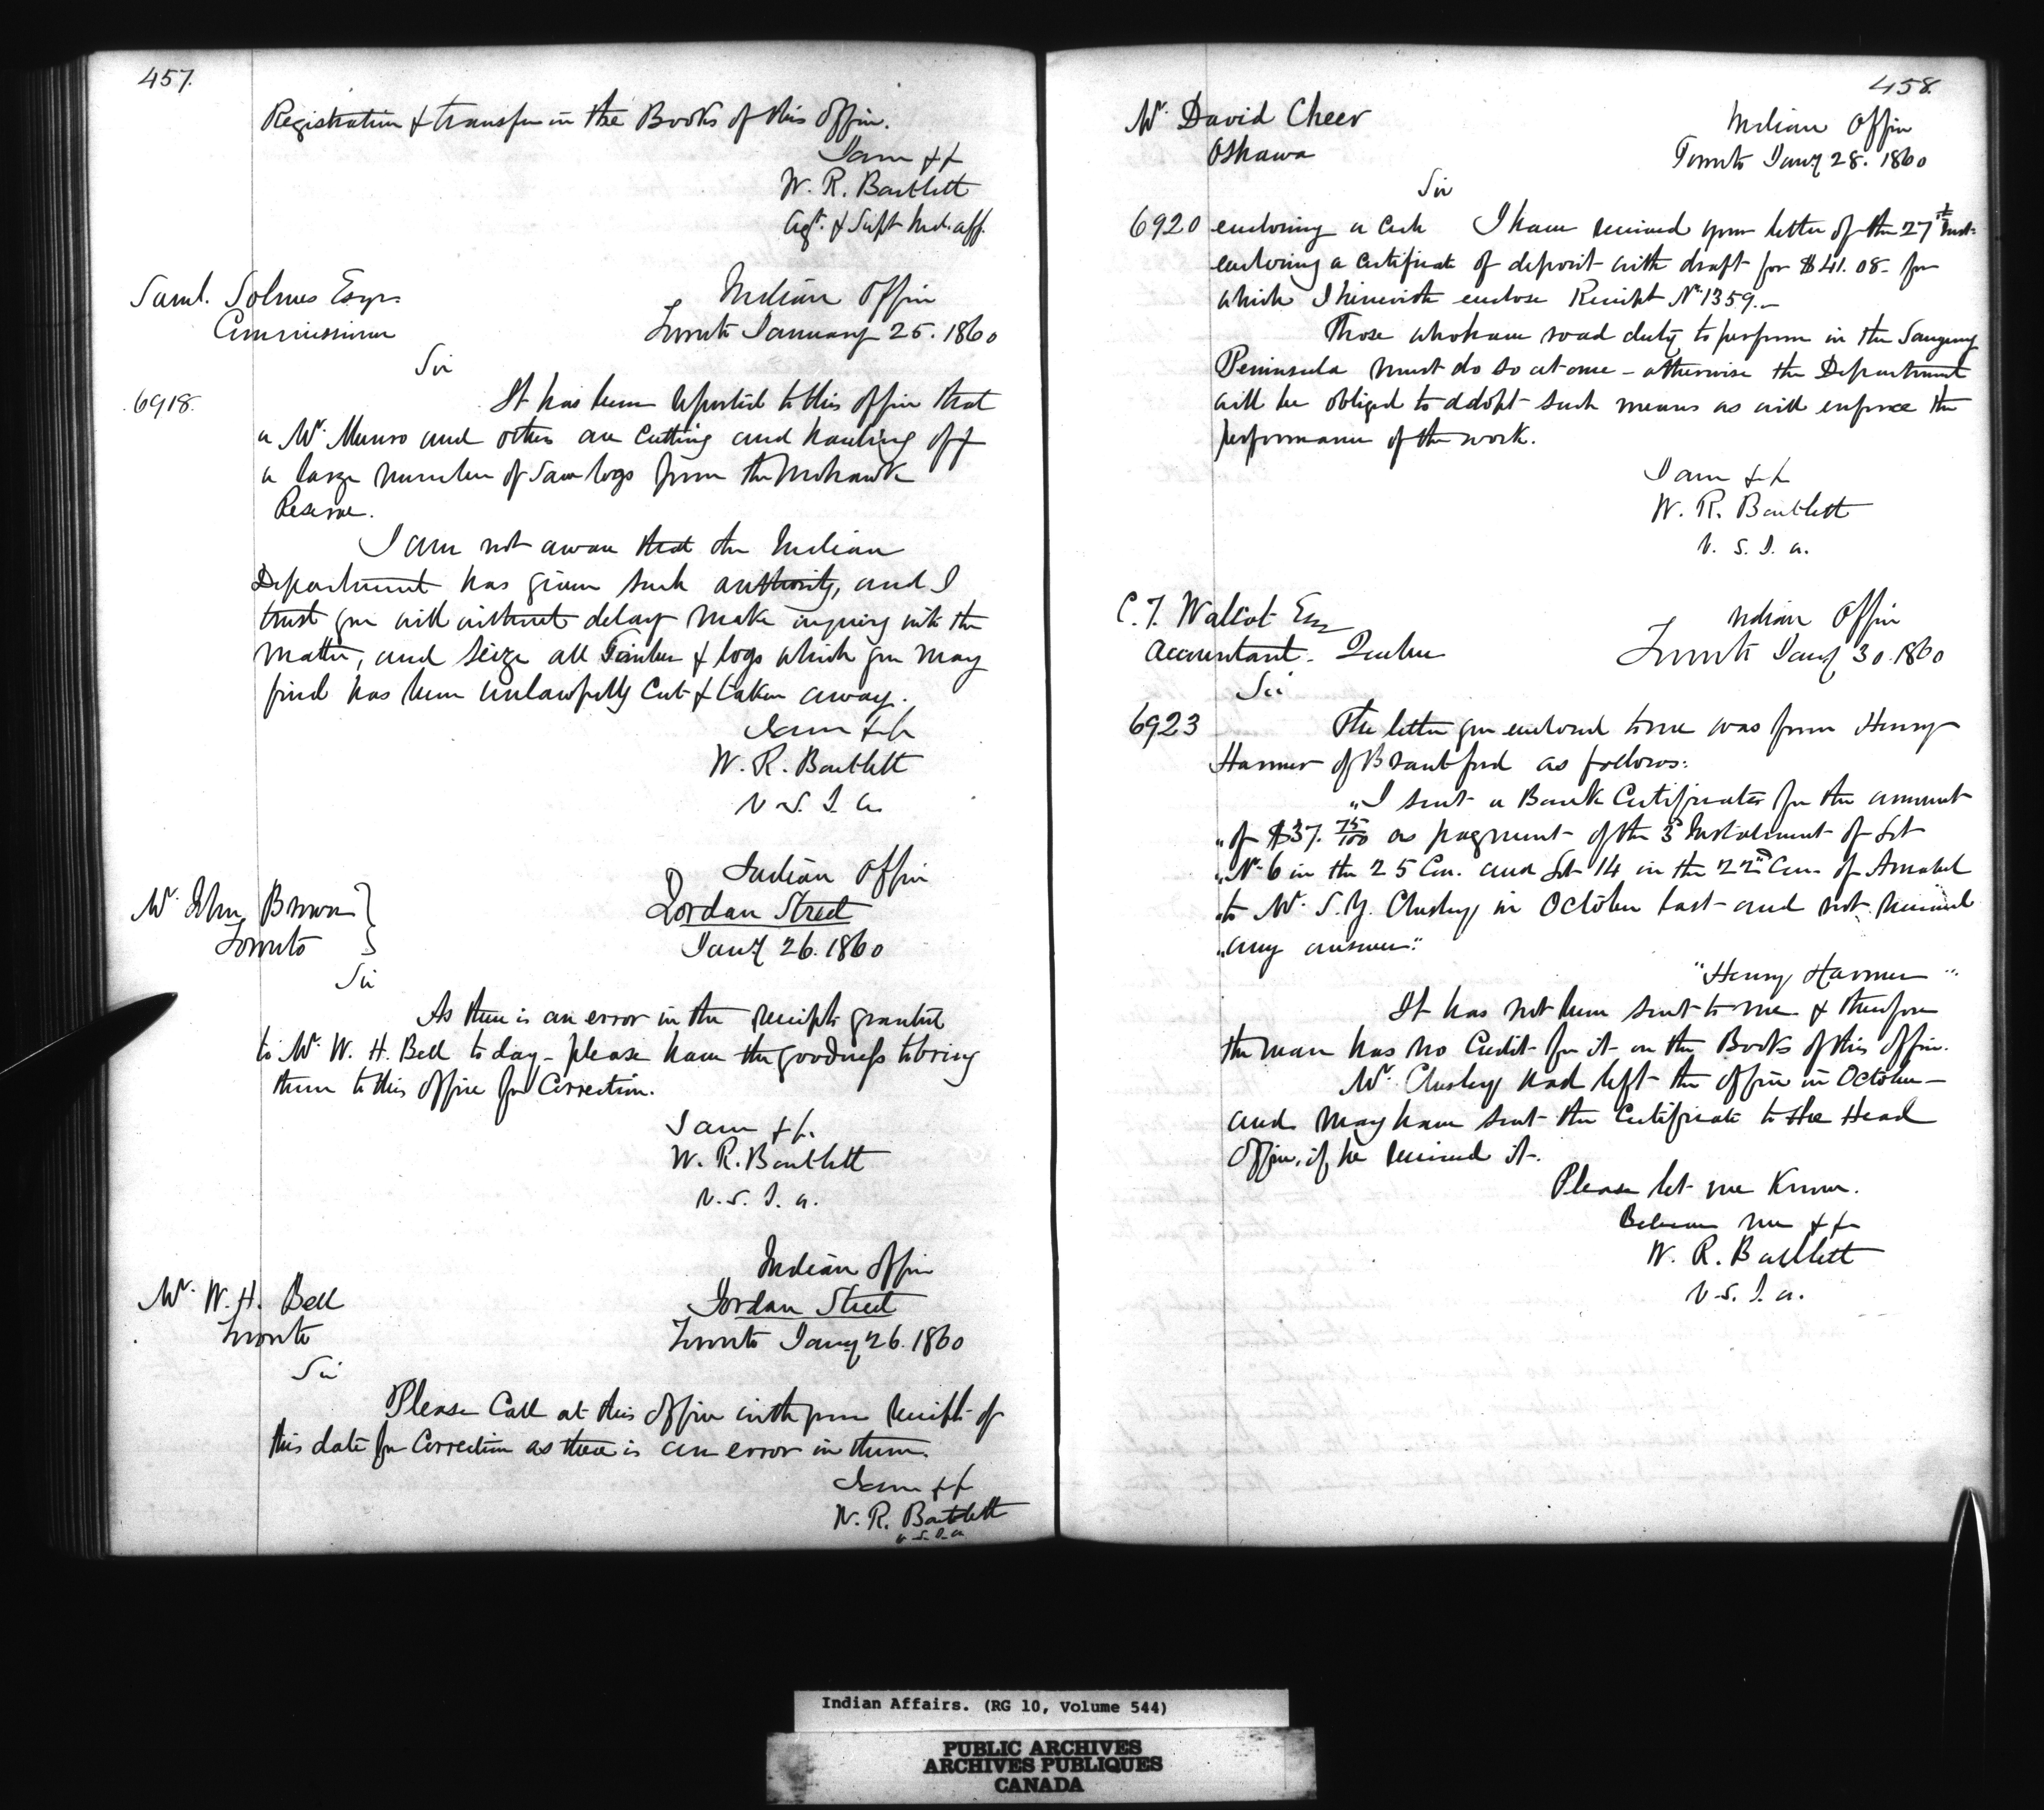 457.
Registration & transfer in the Books of this Office.
I am &c
W. R. Bartlett
Agt. & Supt Ind. aff.
Saml. Solmes Esqr.
Commissioner
Indian Office
Toronto January 25. 1860
Sir
6918.
It has been reported to this office that
a Mr. Munro and others are cutting and hauling off
a large number of Saw logs from the Mohawk
Reserve.
I am not aware that the Indian
Department has given such authority, and I
trust you will without delay make inquiry into the
matter, and seize all Timber & logs which you may
find has been unlawfully Cut & taken away.
I am &c
W. R. Bartlett
V. S. I. A.
Indian Office
Jordan Street
Jany 26. 1860
Mr. John Brown
Toronto
Sir
As there is an error in the receipts granted
to Mr. W. H. Bell to day - please have the goodness to bring
them to this Office for Correction.
I am &c.
W. R. Bartlett
V. S. I. A.
Indian Office
Jordan Street
Toronto Jany 26. 1860
Mr. W. H. Bell
Toronto
Sir
Please Call at this Office with your receipts of
this date for Correction as there is an error in them.
I am &c
W. R. Bartlett
V. S. I. A
458.
Mr. David Cheer
Oshawa
Indian Office
Toronto Jany 28. 1860
Sir
6920
enclosing a I have received your letter of the 27th Inst.
enclosing a Certificate of deposit with draft for $41.08 - for
which I herewith enclose Receipt No. 1359.-
Those who have road duty to perform in the Saugeeng
Peninsula must do so at once - otherwise the Department
will be obliged to adopt such means as will enforce the
performance of the work.
I am &c
W. R. Bartlett
V. S. I. A.
C. T. Walcot Esqr
Accountant - Quebec
Indian Office
Toronto Jany 30. 1860
Sir
6923
The letter you enclosed to me was from Henry
Harmer of Brantford as follows:
"I sent a Bank Certificate for the amount
"of $37. 75/100 as payment of the 3d Instalment of Lot
"No. 6 in the 25 Con. and Lot 14 in the 22nd Con. of Amabel
"to Mr. S. Y. Chesley in October last and not received
"any answer."
"Henry Harmer"
It has not been sent to me & therefore
the man has no Credit for it on the Books of this Office.
Mr. Chesley had left the office in October -
and may have sent the Certificate to the Head
Office, if he received it.
Please let me Know.
Believe me &c
W. R. Bartlett
V. S. I. A.
Indian Affairs. (RG 10, Volume 544)
PUBLIC ARCHIVES
ARCHIVES PUBLIQUES
CANADA